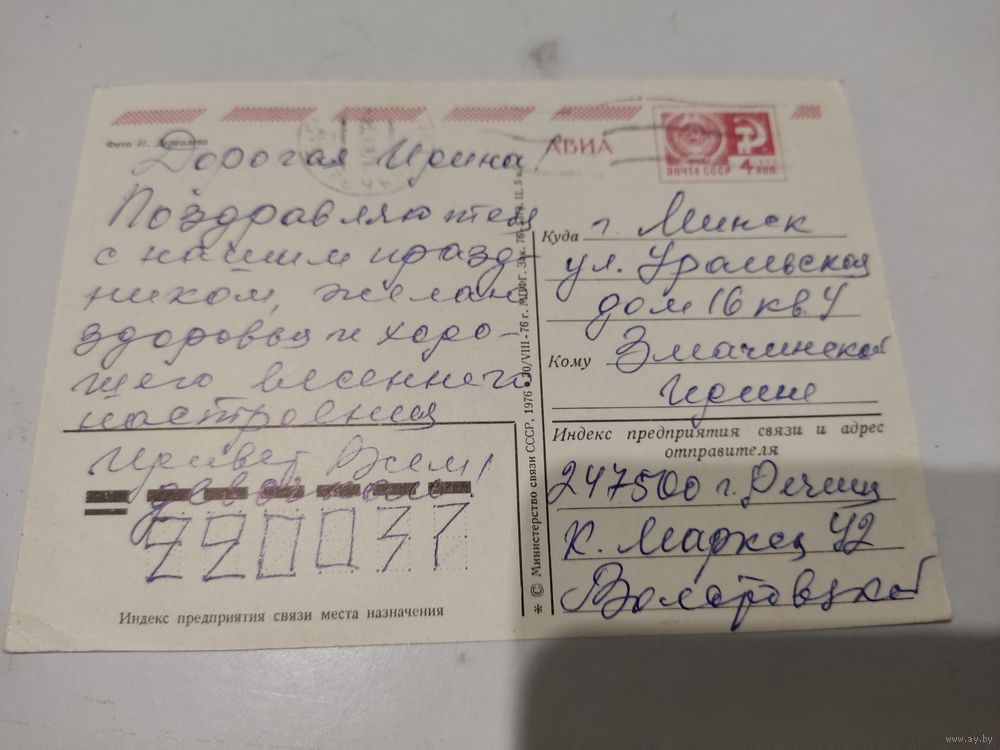 Фото И. Дергилева
АВИА
ПОЧТА СССР
4 КОП.
Дорогая Ирина!
Поздравляю тебя
с нашим празд-
ником, желаю
здоровья и хоро-
шего весеннего
настроения
Привет Всем
девочкам!
220037
Индекс предприятия связи места назначения
* © Министерство связи СССР, 1976 г. 30/VIII-76 г. МПФГ. Зак. 76- Ц. 5 к.
Куда г. Минск
ул. Уральская
дом 16 кв. 4
Кому Змачинской
Ирине
Индекс предприятия связи и адрес
отправителя
247500 г. Речица
К. Маркса 42
www.ay.by